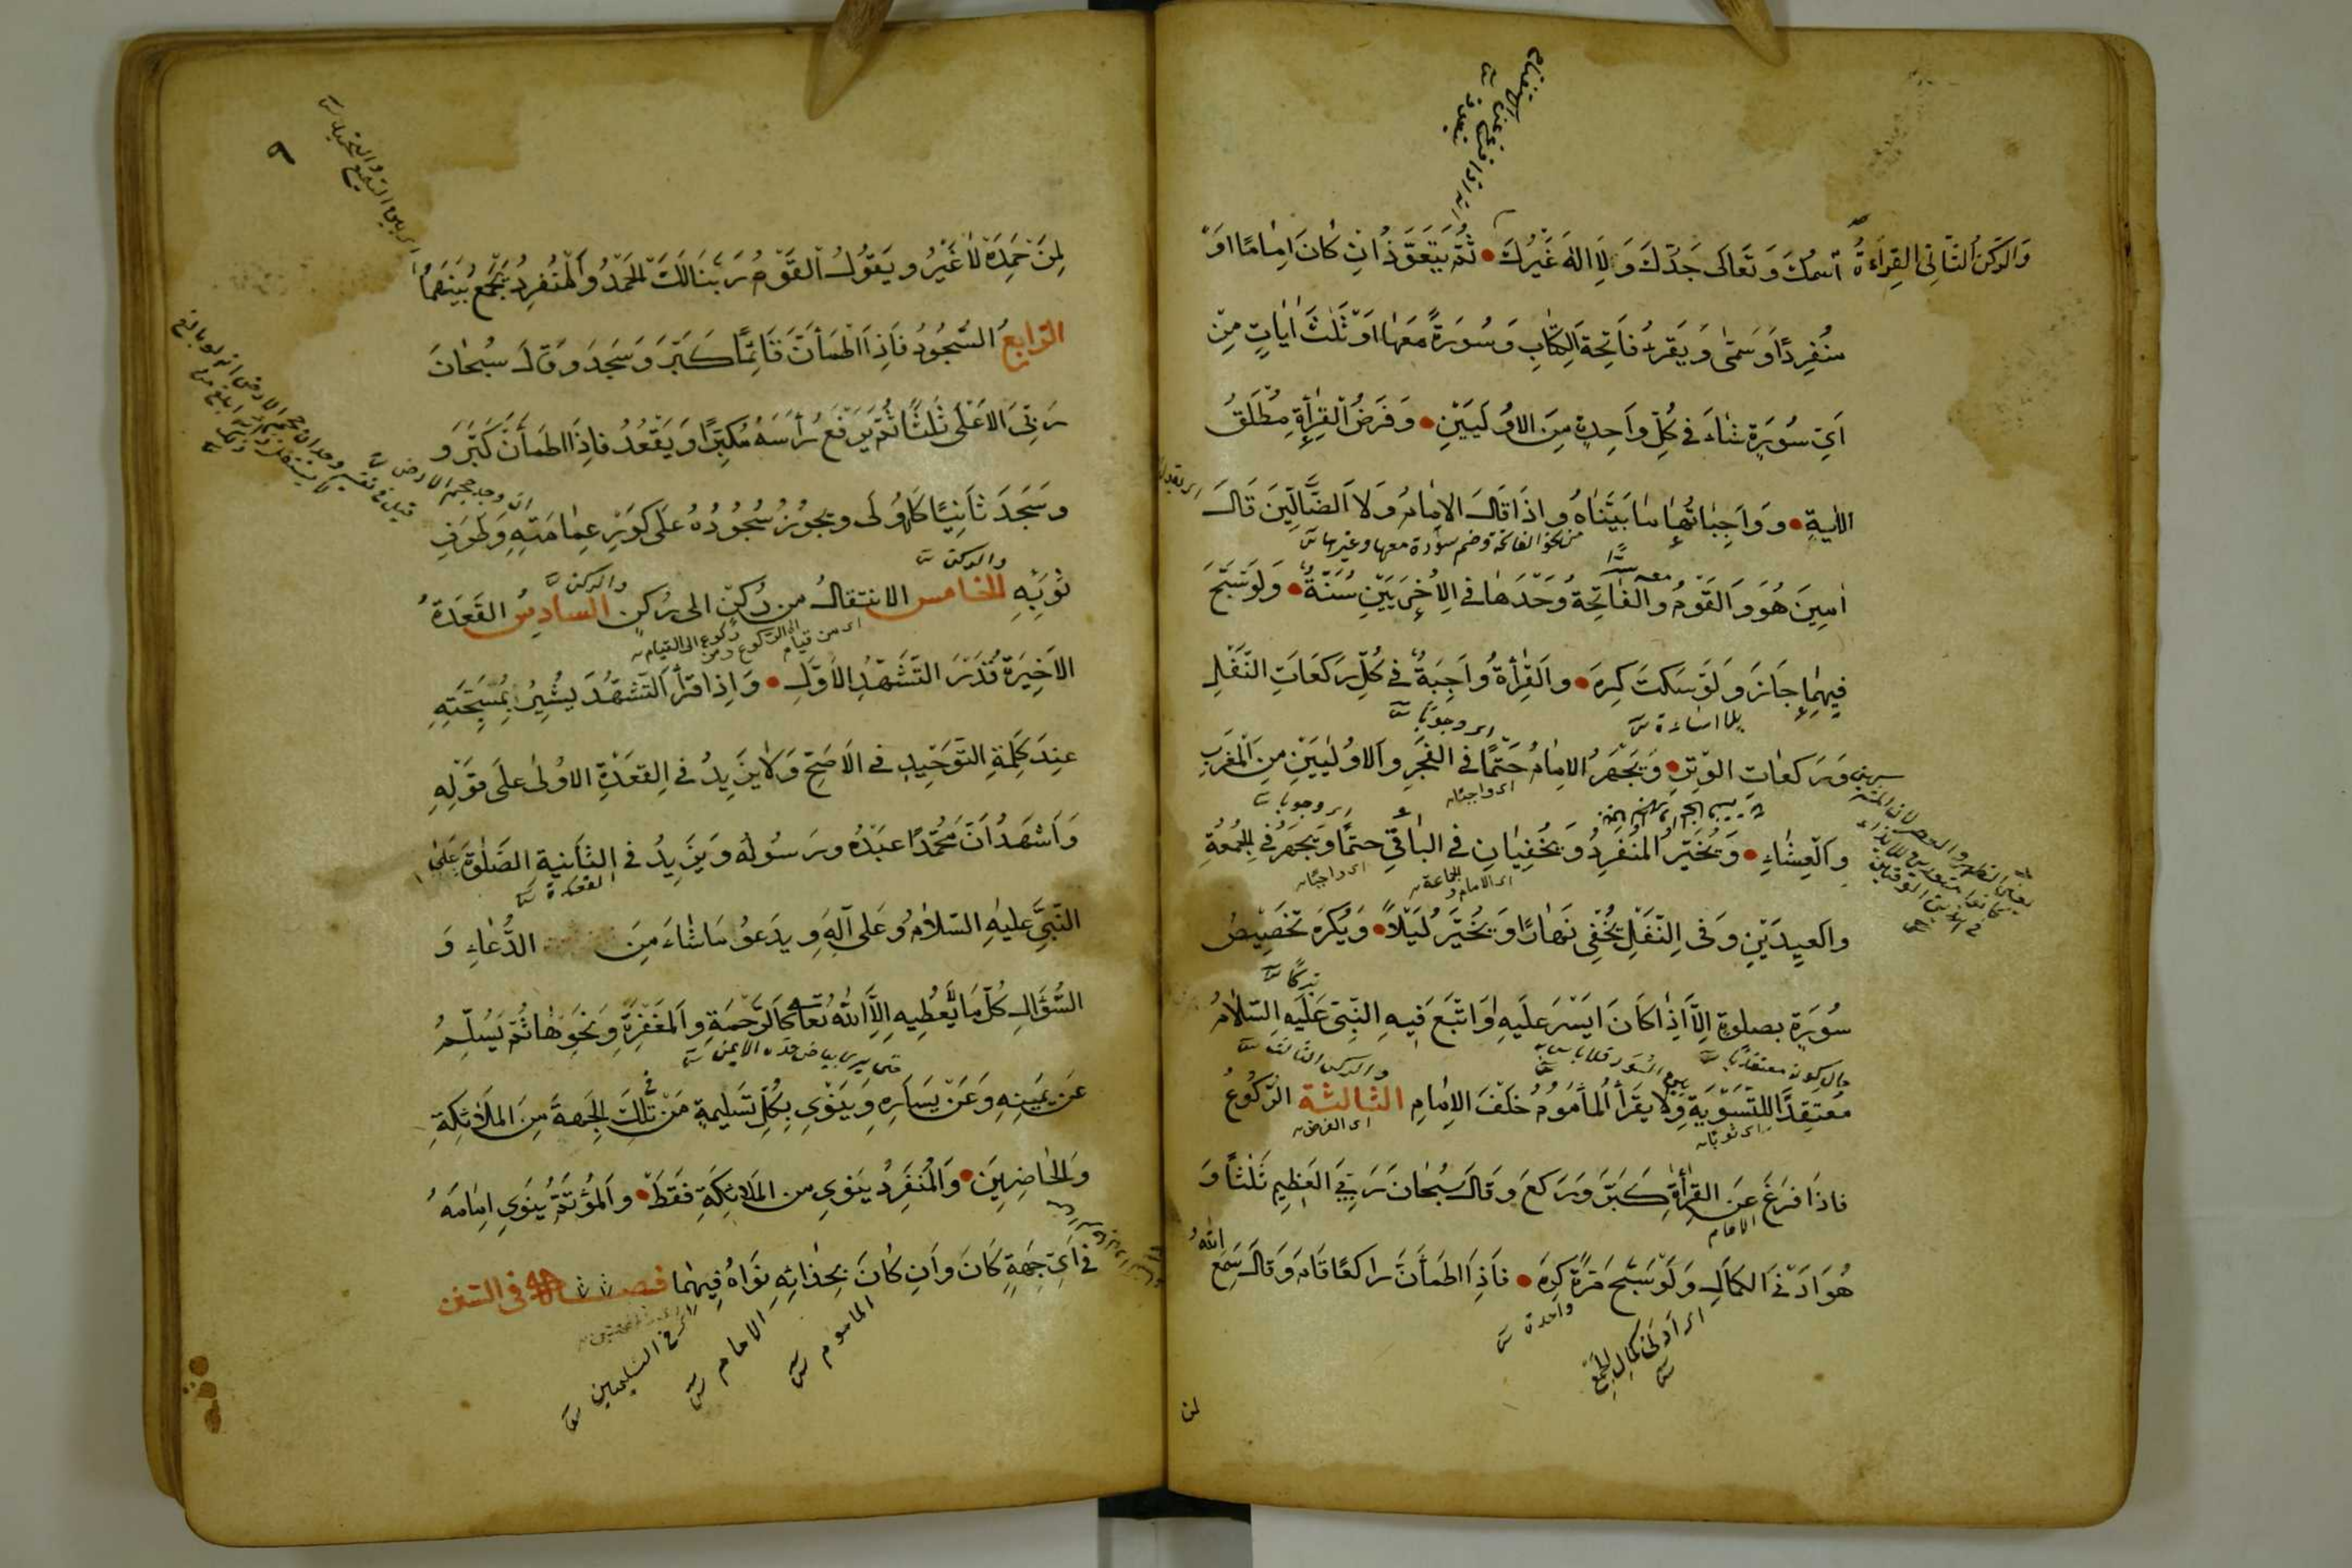 وَالرُّكْنُ الثَّانِى القِرَاءَةُ
اسمُكَ وَتَعَالَى جَدُّكَ وَلَا اِلٰهَ غَيْرُكَ • ثُمَّ يَتَعَوَّذُ اِنْ كَانَ اِمَامًا اَوْ
مُنْفِرِدًا وَسَمّٰى وَيَقْرَأُ فَاتِحَةَ الكِتَابِ وَسُورَةً مَعَهَا اَوْ ثَلٰثَ اٰيَاتٍ مِنْ
اَىِّ سُورَةٍ شَاءَ فِى كُلِّ وَاحِدَةٍ مِنَ الاُولَيَيْنِ • وَفَرْضُ القِرَأةِ مُطْلَقُ
الاٰيَةِ • وَوَاجِبَاتُهَا مَا بَيَّنَّاهُ وَاِذَا قَالَ الاِمَامُ وَلَا الضَّالِّينَ قَالَ
من نحو الفاتحة وضم سورة معها وغيرها
اٰمِينَ هُوَ وَالقَوْمُ وَالفَاتِحَةُ وَحْدَهَا فِى الاُخْرَيَيْنِ سُنَّةٌ • وَلَوْ سَبَّحَ
فِيهِمَا جَازَ وَلَوْ سَكَتَ كُرِهَ • وَالقِرَأةُ وَاجِبَةٌ فِى كُلِّ رَكَعَاتِ النَّفْلِ
بلا اساءة
اى وجوبًا
وَرَكَعَاتِ الوِتْرِ • وَيَجْهَرُ الاِمَامُ حَتْمًا فِى الفَجْرِ وَالاُولَيَيْنِ مِنَ المَغْرِبِ
اى واجبًا
اى وجوبا
وَالعِشَاءِ • وَيُخَيَّرُ المُنْفَرِدُ وَيُخْفِيَانِ فِى البَاقِى حَتْمًا وَيَجْهَرُ فِى الجُمُعَةِ
اى الامام و الجماعة
اى واجبًا
وَالعِيدَيْنِ وَفِى النَّفْلِ يُخْفِى نَهَارًا وَيُخَيَّرُ لَيْلًا • وَيُكْرَهُ تَخْصِيصُ
تبركًا
سُورَةٍ بصلوةٍ اِلَّا اِذَا كَانَ اَيْسَرَ عَلَيهِ اَوْ اتَّبَعَ فِيهِ النَّبِىَّ عَلَيهِ السَّلَامُ
حال كونه معتقدًا
والركن الثالث
مُعْتَقِدًا لِلتَّسْوِيَةِ وَلَا يَقْرَأُ المَأمُومُ خَلْفَ الاِمَامِ الثَّالِثَة الرُّكُوعُ
اى الفرض
فَاذَا فَرَغَ عَنِ القِرَأةِ كَبَّرَ وَرَكَعَ وَقَالَ سُبْحَانَ رَبِّىَ العَظِيمِ ثَلٰثًا وَ
الامام
اللهُ
هُوَ اَدْنَى الكَمَالِ وَلَوْ سَبَّحَ مَرَّةً كُرِهَ • فَاِذَا اطْمَأَنَّ رَاكِعًا قَامَ وَقَالَ سَمِعَ
واحدة
اى ادنى كمال الجمع
لمن
٩
لِمَنْ حَمِدَهُ لَا غَيْرُ وَيَقُولُ القَوْمُ رَبَّنَا لَكَ الحَمْدُ وَالمُنْفَرِدُ يَجْمَعُ بَيْنَهُمَا
الرَّابِعُ السُّجُودُ فَاِذَا اطْمَأَنَّ قَائِمًا كَبَّرَ وَسَجَدَ وَقَالَ سُبْحَانَ
رَبِّىَ الاَعْلَى ثَلٰثًا ثُمَّ يَرْفَعُ رَأسَهُ مُكَبِّرًا وَيَقْعُدُ فَاِذَا اطْمَأَنَّ كَبَّرَ وَ
ان وجد حجم الارض
وَسَجَدَ ثَانِيًا كَالاُولَى وَيَجُوزُ سُجُودُهُ عَلَى كَوْرِ عِمَامَتِهِ وَطَرَفِ
والركن
والركن
ثَوْبِهِ الخَامِس الانتقالُ مِن رُكنٍ الى رُكنٍ السَادِسُ القَعْدَةُ
اى من قيام الى الركوع ومن ركوع الى القيام
الاَخِيرَةُ قَدْرَ التَّشَهُّدِ الاَوَّلِ • وَاِذَا قَرَأَ التَّشَهُّدَ يُشِيرُ بِمُسَبِّحَتِهِ
عِنْدَ كَلِمَةِ التَّوْحِيدِ فِى الاَصَحِّ وَلَا يَزِيدُ فِى القَعْدَةِ الاُولَى عَلَى قَوْلِهِ
وَاَشْهَدُ اَنَّ مُحَمَّدًا عَبْدُهُ وَرَسُولُهُ وَيَزِيدُ فِى الثَّانِيَةِ الصَّلوٰةَ عَلَى
القعدة
النَّبِىِّ عَلَيهِ السَّلَامُ وَعَلَى آلِهِ وَيَدعُو مَا شَاءَ مِنَ الدُّعَاءِ وَ
السُّؤَالِ كُلَّ مَا لَا يُعْطِيهِ اِلَّا اللهُ تَعَالى كَالرَّحْمَةِ وَالمَغْفِرَةِ وَنَحْوِهَا ثُمَّ يُسَلِّمُ
حتى يرى بياض خده الايمن
عَنْ يَمِينِهِ وَعَنْ يَسَارِهِ وَيَنْوِى بِكُلِّ تَسْلِيمَةٍ مَنْ فى تِلْكَ الجِهَةِ مِنَ المَلَائِكَةِ
وَالحَاضِرِينَ • وَالمُنْفَرِدُ يَنوِى مِن المَلَائِكَةِ فَقَطْ • وَالمُؤْتَمُّ يَنْوِى اِمَامَهُ
فِى اَىِّ جِهَةٍ كَانَ وَاِنْ كَانَ بِحِذَائِهِ نَوَاهُ فِيهِمَا فصل فى السنن
المأموم
الامام
اى فى التسليمتين